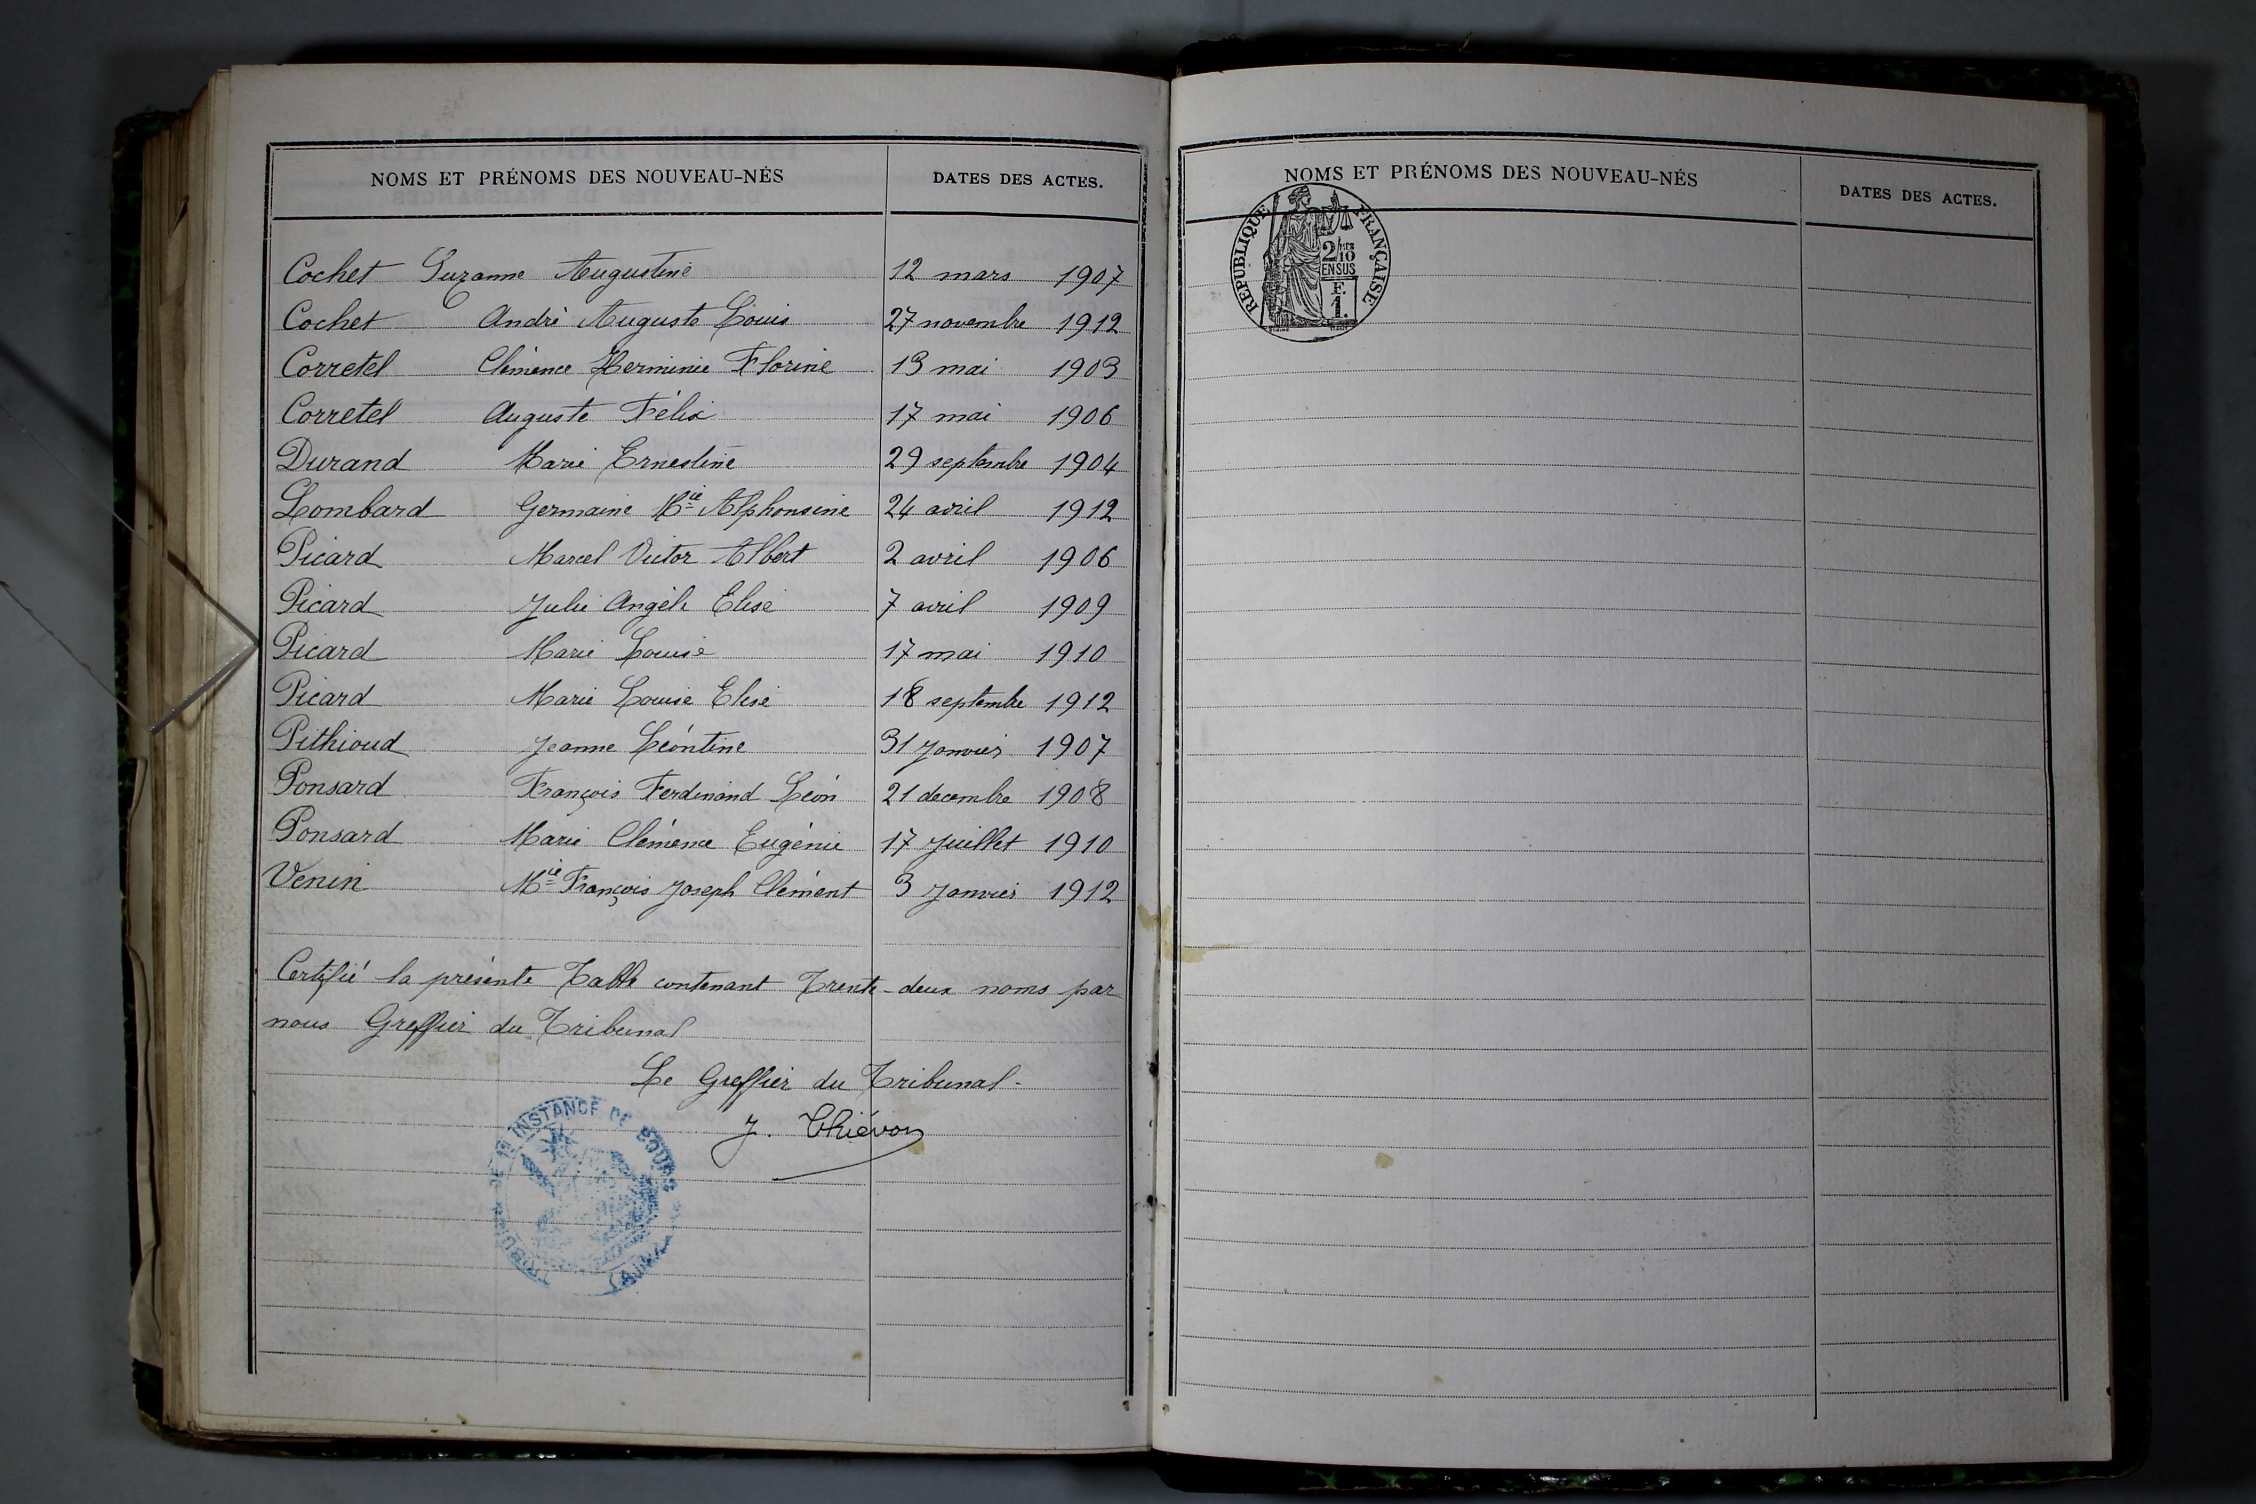 NOMS ET PRÉNOMS DES NOUVEAU-NÉS DATES DES ACTES.
Cochet Suzanne Augustine 12 mars 1907
Cochet André Auguste Louis 27 novembre 1912
Corretel Clémence Herminie Florine 13 mai 1903
Corretel Auguste Félix 17 mai 1906
Durand Marie Ernestine 29 septembre 1904
Lombard Germaine Mie Alphonsine 24 avril 1912
Picard Marcel Victor Albert 2 avril 1906
Picard Julie Angèle Elise 7 avril 1909
Picard Marie Louise 17 mai 1910
Picard Marie Louise Elise 18 septembre 1912
Pithioud Jeanne Léontine 31 Janvier 1907
Ponsard François Ferdinand Léon 21 decembre 1908
Ponsard Marie Clémence Eugénie 17 Juillet 1910
Venin Mie François Joseph Clément 3 Janvier 1912
Certifié la présente Table contenant Trente-deux noms par
nous Greffier du Tribunal
Le Greffier du Tribunal-
J. Thiévon
TRIBUNAL DE 1RE INSTANCE DE BOURG
(AIN)
NOMS ET PRÉNOMS DES NOUVEAU-NÉS DATES DES ACTES.
REPUBLIQUE FRANÇAISE
2/10
EN SUS
F.
1.